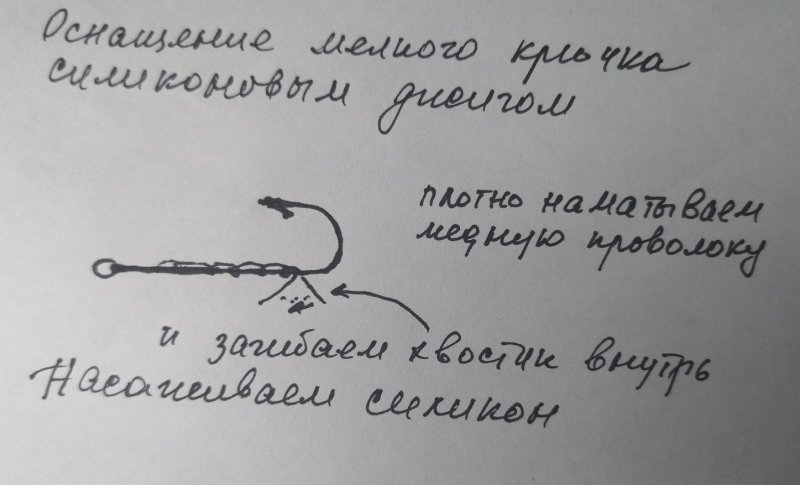 Оснащение мелкого крючка
силиконовым джигом
плотно наматываем
медную проволоку
и загибаем хвостик внутрь
Насаживаем силикон